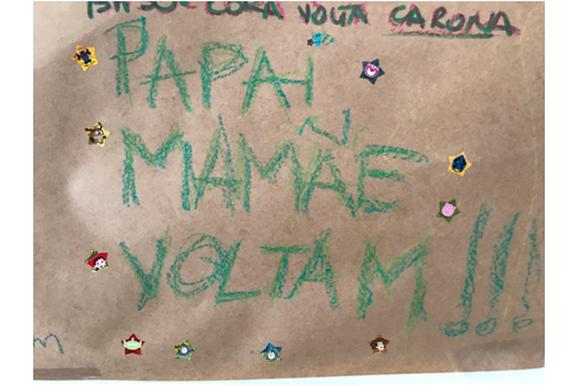 VOLTA CARONA
PAPAI
MAMÃE
VOLTAM!!!
m